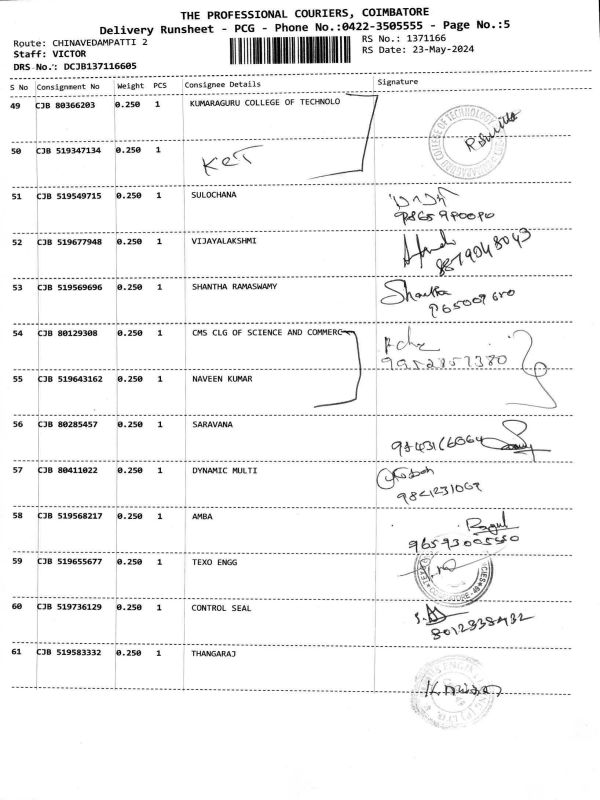 THE PROFESSIONAL COURIERS, COIMBATORE
Delivery Runsheet - PCG - Phone No.:0422-3505555 - Page No.:5
Route: CHINAVEDAMPATTI 2 RS No.: 1371166
Staff: VICTOR RS Date: 23-May-2024
DRS No.: DCJB137116605
S No Consignment No Weight PCS Consignee Details Signature
49 CJB 80366203 0.250 1 KUMARAGURU COLLEGE OF TECHNOLO
50 CJB 519347134 0.250 1 KCT
51 CJB 519549715 0.250 1 SULOCHANA
52 CJB 519677948 0.250 1 VIJAYALAKSHMI
53 CJB 519569696 0.250 1 SHANTHA RAMASWAMY Shantha
54 CJB 80129308 0.250 1 CMS CLG OF SCIENCE AND COMMERC
9952857380
55 CJB 519643162 0.250 1 NAVEEN KUMAR
56 CJB 80285457 0.250 1 SARAVANA
57 CJB 80411022 0.250 1 DYNAMIC MULTI
58 CJB 519568217 0.250 1 AMBA
59 CJB 519655677 0.250 1 TEXO ENGG
60 CJB 519736129 0.250 1 CONTROL SEAL
8012338432
61 CJB 519583332 0.250 1 THANGARAJ